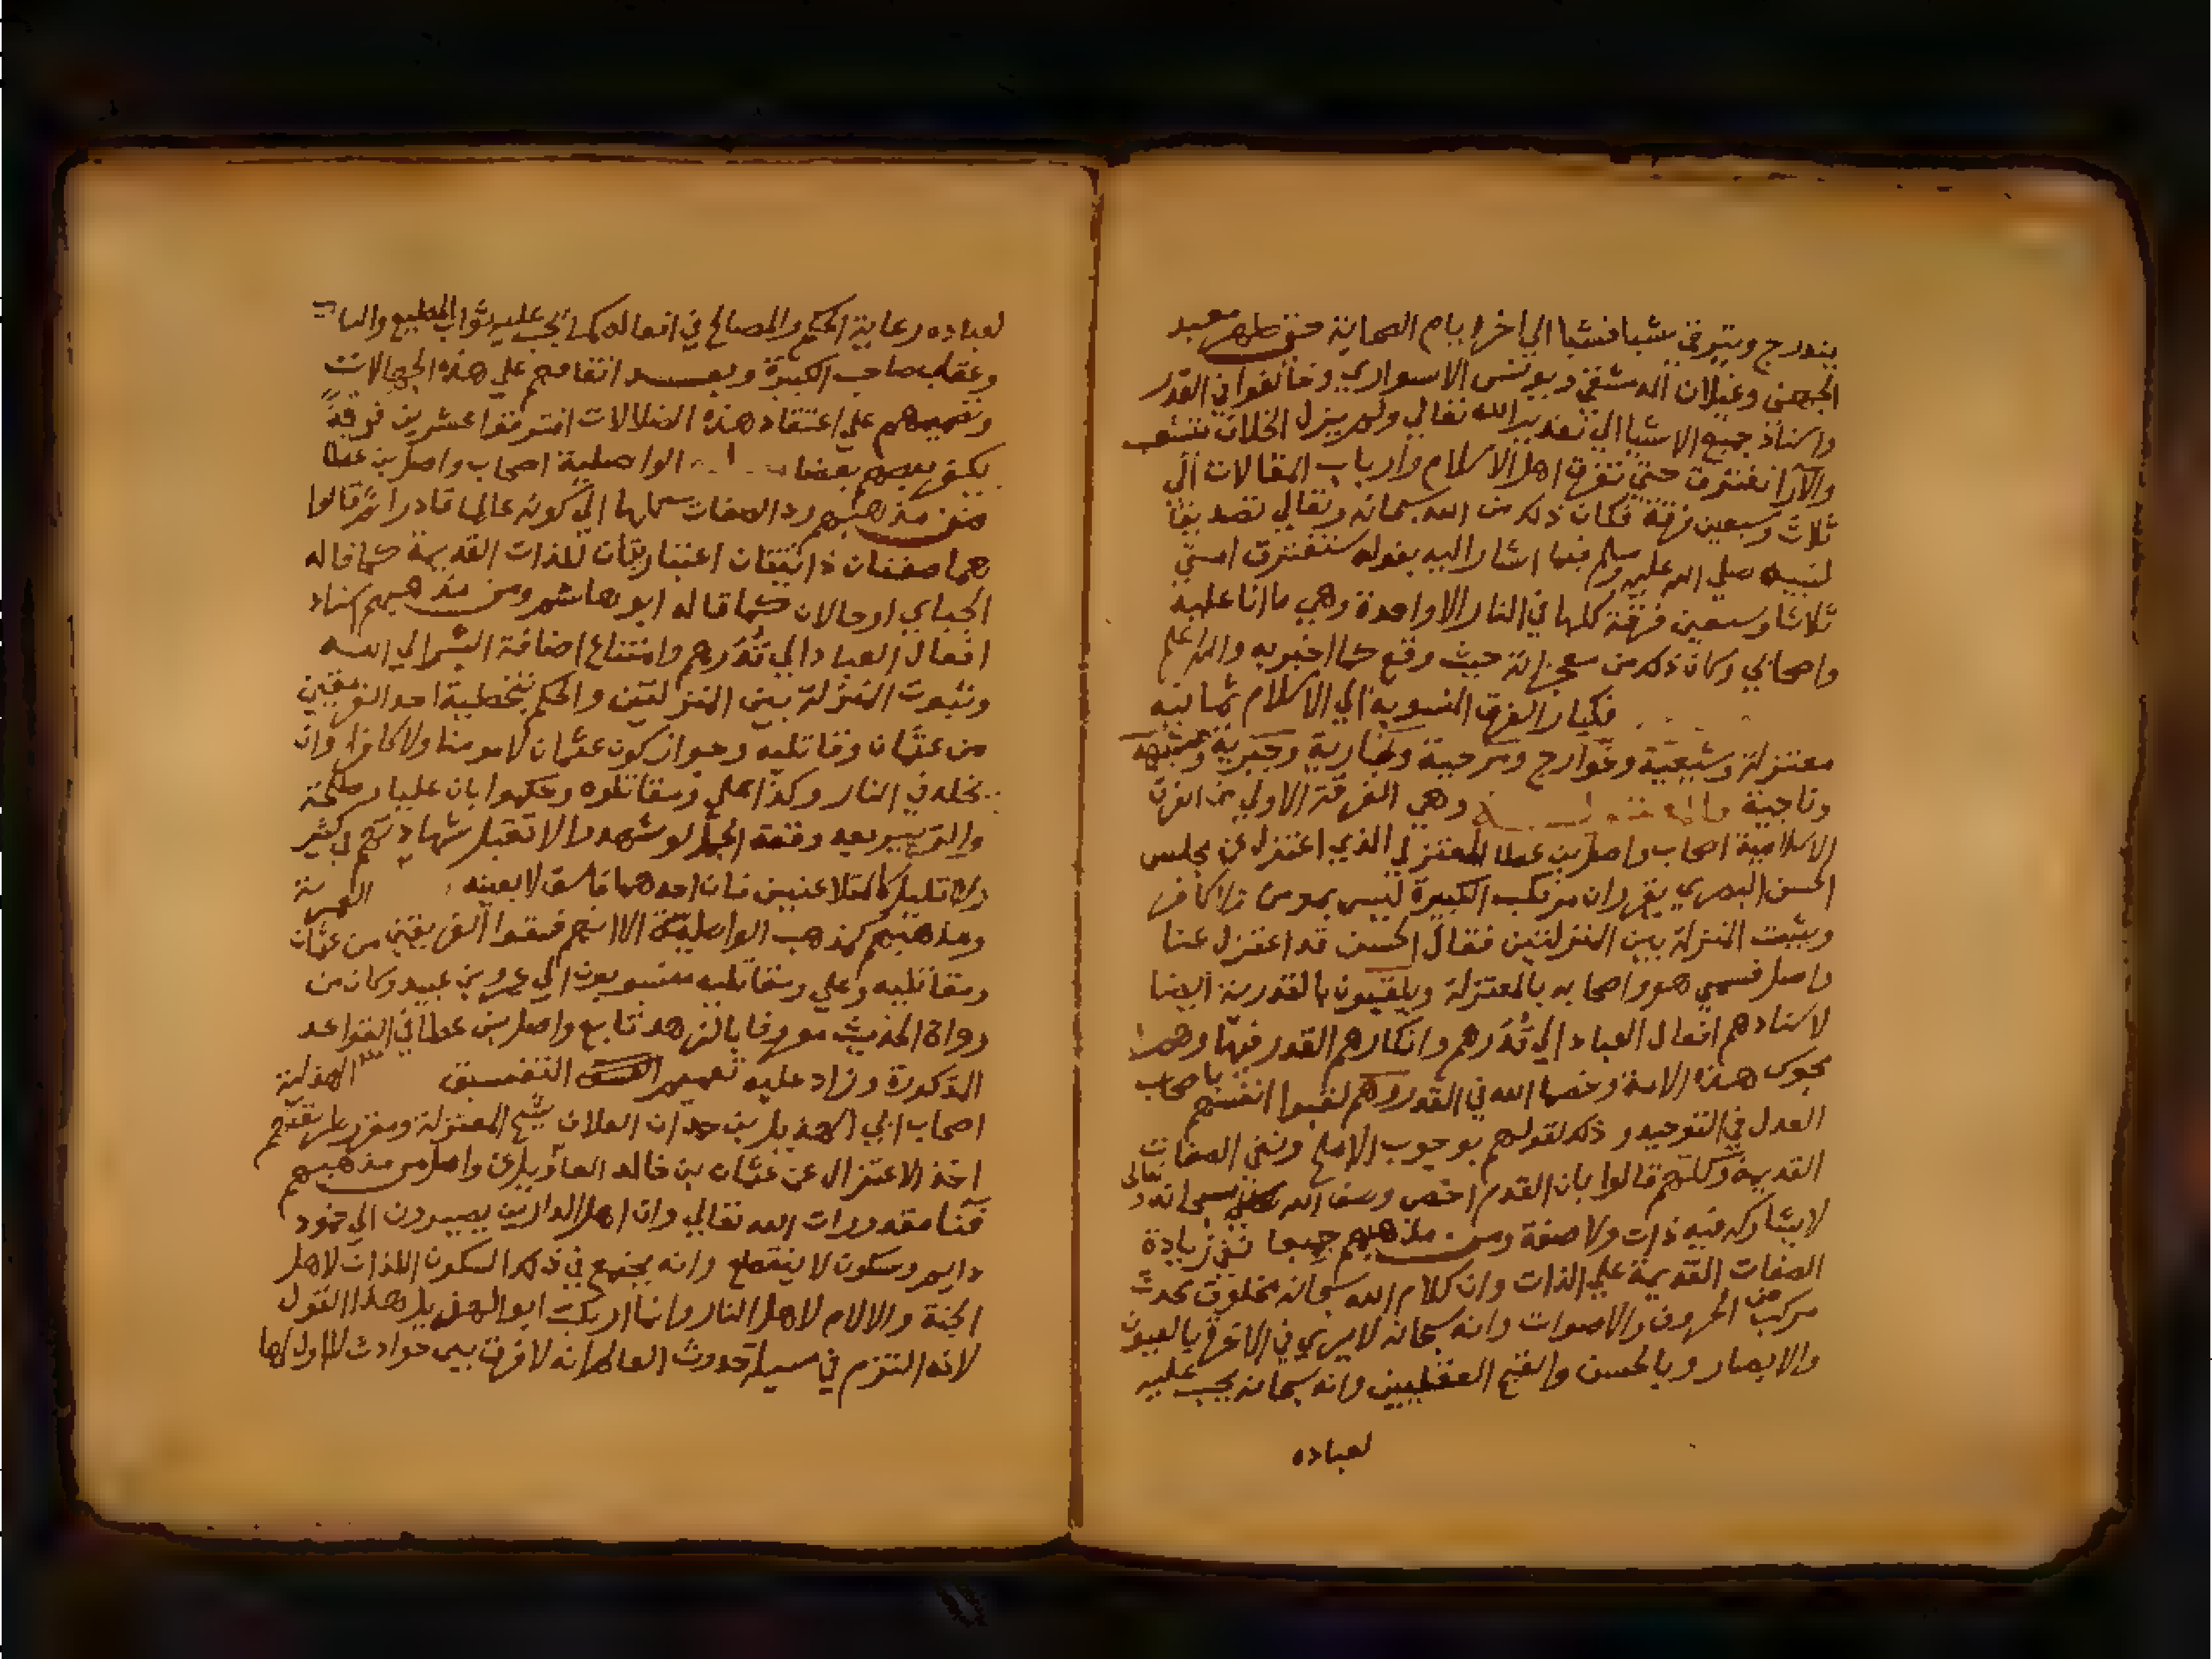 يتدرج ويترقي شيا فشيا الي اخر ايام الصحابة حتي ظهر معبد
الجهني وغيلان الدمشقي ويونس الاسواري وخالفوا في القدر
واسناد جميع الاشيا الي تقدير الله تعالي ولم يزل الخلاف يتشعب
والآرا تفترق حتي تفرق اهل الاسلام وارباب المقالات الي
ثلاث وسبعين فرقة فكان ذلك من الله سبحانه وتعالي تصديقا
لنبيه صلي الله عليه وسلم فيما اشار اليه بقوله ستفترق امتي
ثلاثا وسبعين فرقة كلها في النار الا واحدة وهي ما انا عليه
واصحابي وكان ذلك من معجزاته حيث وقع كما اخبر به والله اعلم
فكبار الفرق المنسوبة الي الاسلام ثمانية
معتزلة وشيعية وخوارج ومرجية ونجارية وجبرية ومشبهة
وناجية وهي الفرقة الاولي من الفرق
الاسلامية اصحاب واصل بن عطا المعتزلي الذي اعتزل عن مجلس
الحسن البصري يقرر ان مرتكب الكبيرة ليس بمومن ولا كافر
ويثبت المنزلة بين المنزلتين فقال الحسن قد اعتزل عنا
واصل فسمي هو واصحابه بالمعتزلة ويلقبون بالقدرية ايضا
لاسنادهم افعال العباد الي قُدَرهم وانكارهم القدر فيها وهم
مجوس هذه الامة وخصما الله في القدر وهم لقبوا انفسهم باصحاب
العدل في التوحيد وذلك لقولهم بوجوب الاصلح ونفي الصفات
القديمة وكلهم قالوا بان القدم اخص وصف الله سبحانه وتعالى
لا يشاركه فيه ذات ولا صفة ومن مذهبهم جميعا نفي زيادة
الصفات القديمة علي الذات وان كلام الله سبحانه مخلوق محدث
مركب من الحروف والاصوات وانه سبحانه لا يري في الاخرة بالعيون
والابصار وبالحسن والقبح العقليين وانه سبحانه يجب عليه
لعباده
لعباده رعاية الحكم والمصالح في افعاله كما يجب عليه ثواب المطيع والتا
وعقاب صاحب الكبيرة وبعد اتفاقهم علي هذه الجهالات
وتصميمهم علي اعتقاد هذه الضلالات افترقوا عشرين فرقةً
يكفر بعضهم بعضا الواصلية اصحاب واصل بن عطا
فمن مذهبهم رد الصفات كلها الي كونه عالما قادرا ثم قالوا
هما صفتان ذاتيتان اعتباريتان للذات القديمة كما قاله
الجباي او حالان كما قاله ابو هاشم ومن مذهبهم اسناد
افعال العباد الي قُدَرهم وامتناع اضافة الشر الي الله
وثبوت المنزلة بين المنزلتين والحكم بتخطية احد الفريقين
من عثمان وقاتليه وجواز كون عثمان لا مومنا ولا كافرا وان
يخلد في النار وكذا علي ومقاتلوه وحكموا بان عليا وطلحة
والزبير بعد وقعة الجمل لو شهدوا لا تقبل شهادتهم في كثير
ولا قليل كالمتلاعنين فان احدهما فاسق لا بعينه العمرية
ومذهبهم كمذهب الواصلية الا انهم فسقوا الفريقين من عثمان
ومقاتليه وعلي ومقاتليه منسوبون الي عمرو بن عبيد وكان من
رواة الحديث معروفا بالزهد تابع واصل بن عطا في القواعد
المذكورة وزاد عليه تعميم التفسيق الهذلية
اصحاب ابي الهذيل بن حمدان العلاف شيخ المعتزلة ومقرر طريقتهم
اخذ الاعتزال عن عثمان بن خالد الطويل عن واصل من مذهبهم
فنا مقدورات الله تعالي وان اهل الدارين يصيرون الي خمود
دايم وسكون لا ينقطع وانه يجتمع في ذلك السكون اللذات لاهل
الجنة والالام لاهل النار وانما ارتكب ابو الهذيل هذا القول
لانه التزم في مسيلة حدوث العالم انه لا فرق بين حوادث لا اول لها